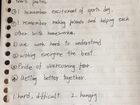 ① remember excitement of sports day.
② remember making friends and helping each
other with homeworks.
③ we work hard to understand
④ wishing everyone the best.
⑤ Pride of overcoming fear
⑥ Getting better together.
1. hard, difficult 2. hungry